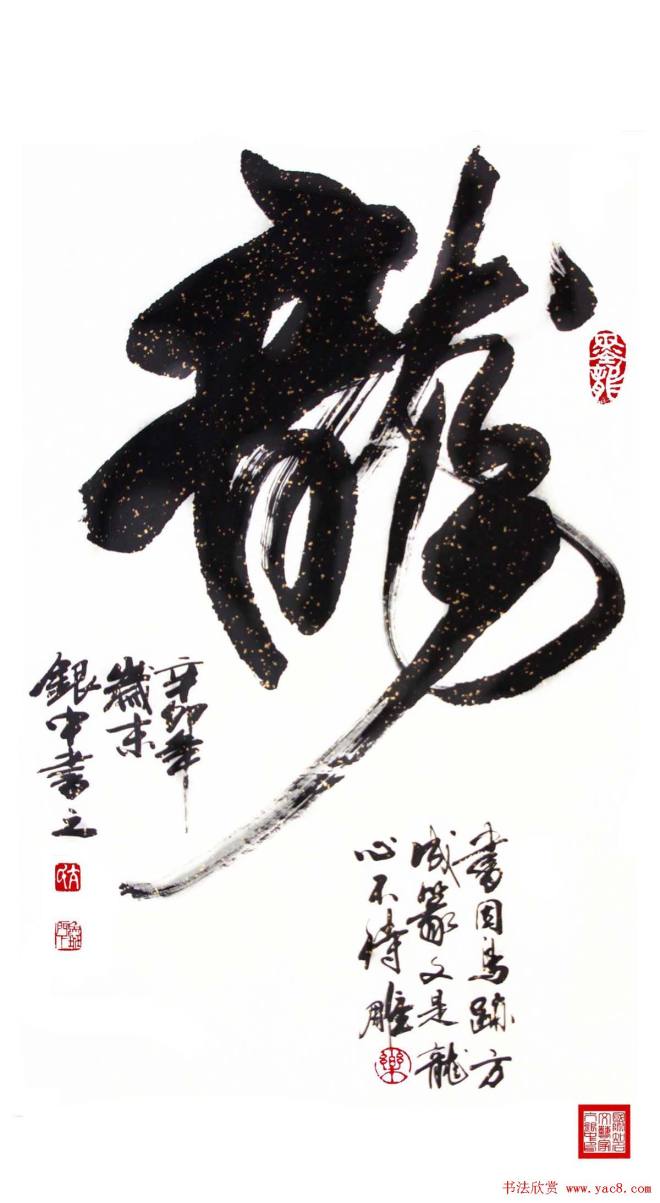 龍
墨龍
書因鳥跡方
成篆文是龍
心不待雕
樂
辛卯年
歲末
銀中書之
书法欣赏 www.yac8.com